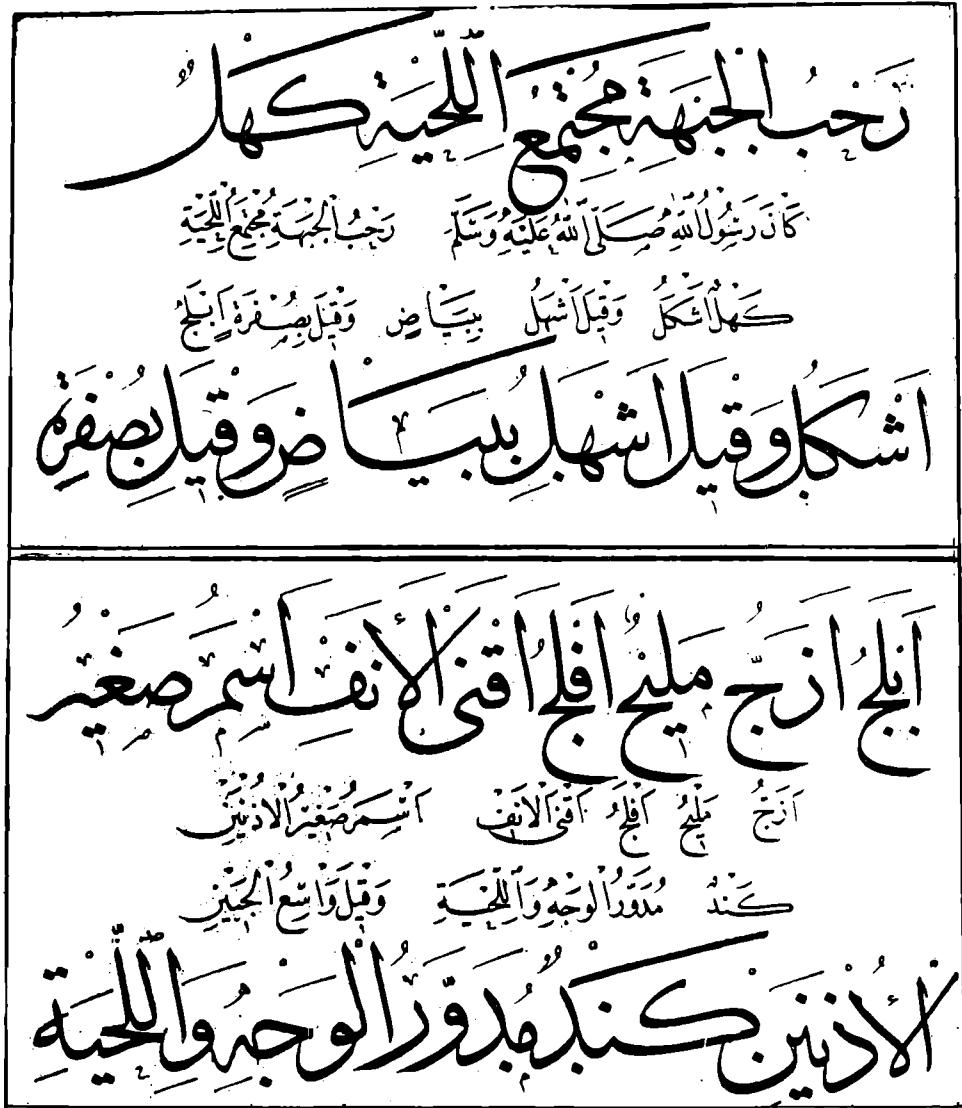 رَحْبُ الْجَبْهَةِ مُجْتَمِعُ اللِّحْيَةِ كَهْلٌ
كَانَ رَسُولُ اللّٰهِ صَلَّى اللّٰهُ عَلَيْهِ وَسَلَّمَ رَحْبُ الْجَبْهَةِ مُجْتَمِعُ اللِّحْيَةِ
كَهْلٌ اَشْكَلُ وَقِيلَ اَشْهَلُ بِبَيَاضٍ وَقِيلَ بِصُفْرَةٍ اَبْلَجُ
اَشْكَلُ وَقِيلَ اَشْهَلُ بِبَيَاضٍ وَقِيلَ بِصُفْرَةٍ
اَبْلَجُ اَزَجُّ مَلِيحٌ اَفْلَجُ اَقْنَى الْأَنْفِ اَسْمَرُ صَغِيرُ
اَزَجُّ مَلِيحٌ اَفْلَجُ اَقْنَى الْاَنْفِ اَسْمَرُ صَغِيرُ الْاُذْنَيْنِ
كَنْدٌ مُدَوَّرُ الْوَجْهِ وَاللِّحْيَةِ وَقِيلَ وَاسِعُ الْجَبِينِ
الْأُذْنَيْنِ كَنْدٌ مُدَوَّرُ الْوَجْهِ وَاللِّحْيَةِ